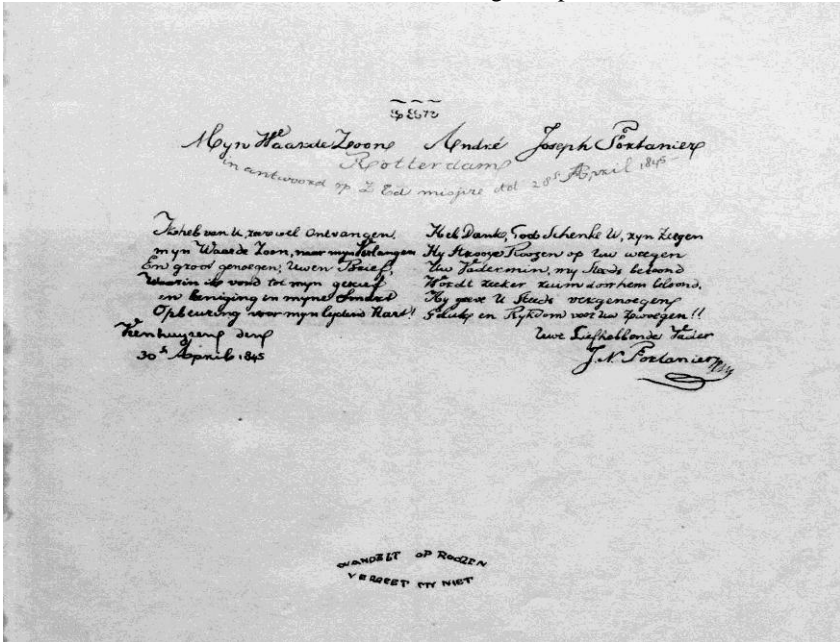 Myn We Waarde Zoon André Joseph Fortanier
Rotterdam
in antwoord op Z Ed missive dd 28st April 1845
Ik heb van U, zeer wel Ontvangen,
myn Waarde Zoon, naar myn Verlangen
En groot genoegen, Uwen Brief,
Waarin ik vond tot myn gerief
en leniging en myne Smart
Opbeuring voor myn lydend Hart!
Heb Dank, God Schenke U, zyn Zeegen
Hy Strooye Roozen op Uw weegen
Uw Vadermin, my Steeds betoond
Wordt zeker ruim door hem beloond.
Hy geeve U Steeds vergenoegen
Geluk en Rykdom voor Uw zwoegen!!
Veenhuyzen den
30st April 1845
Uwe Liefhebbende Vader
J. N. Fortanier
WANDELT OP ROOZEN
VERGEET MY NIET